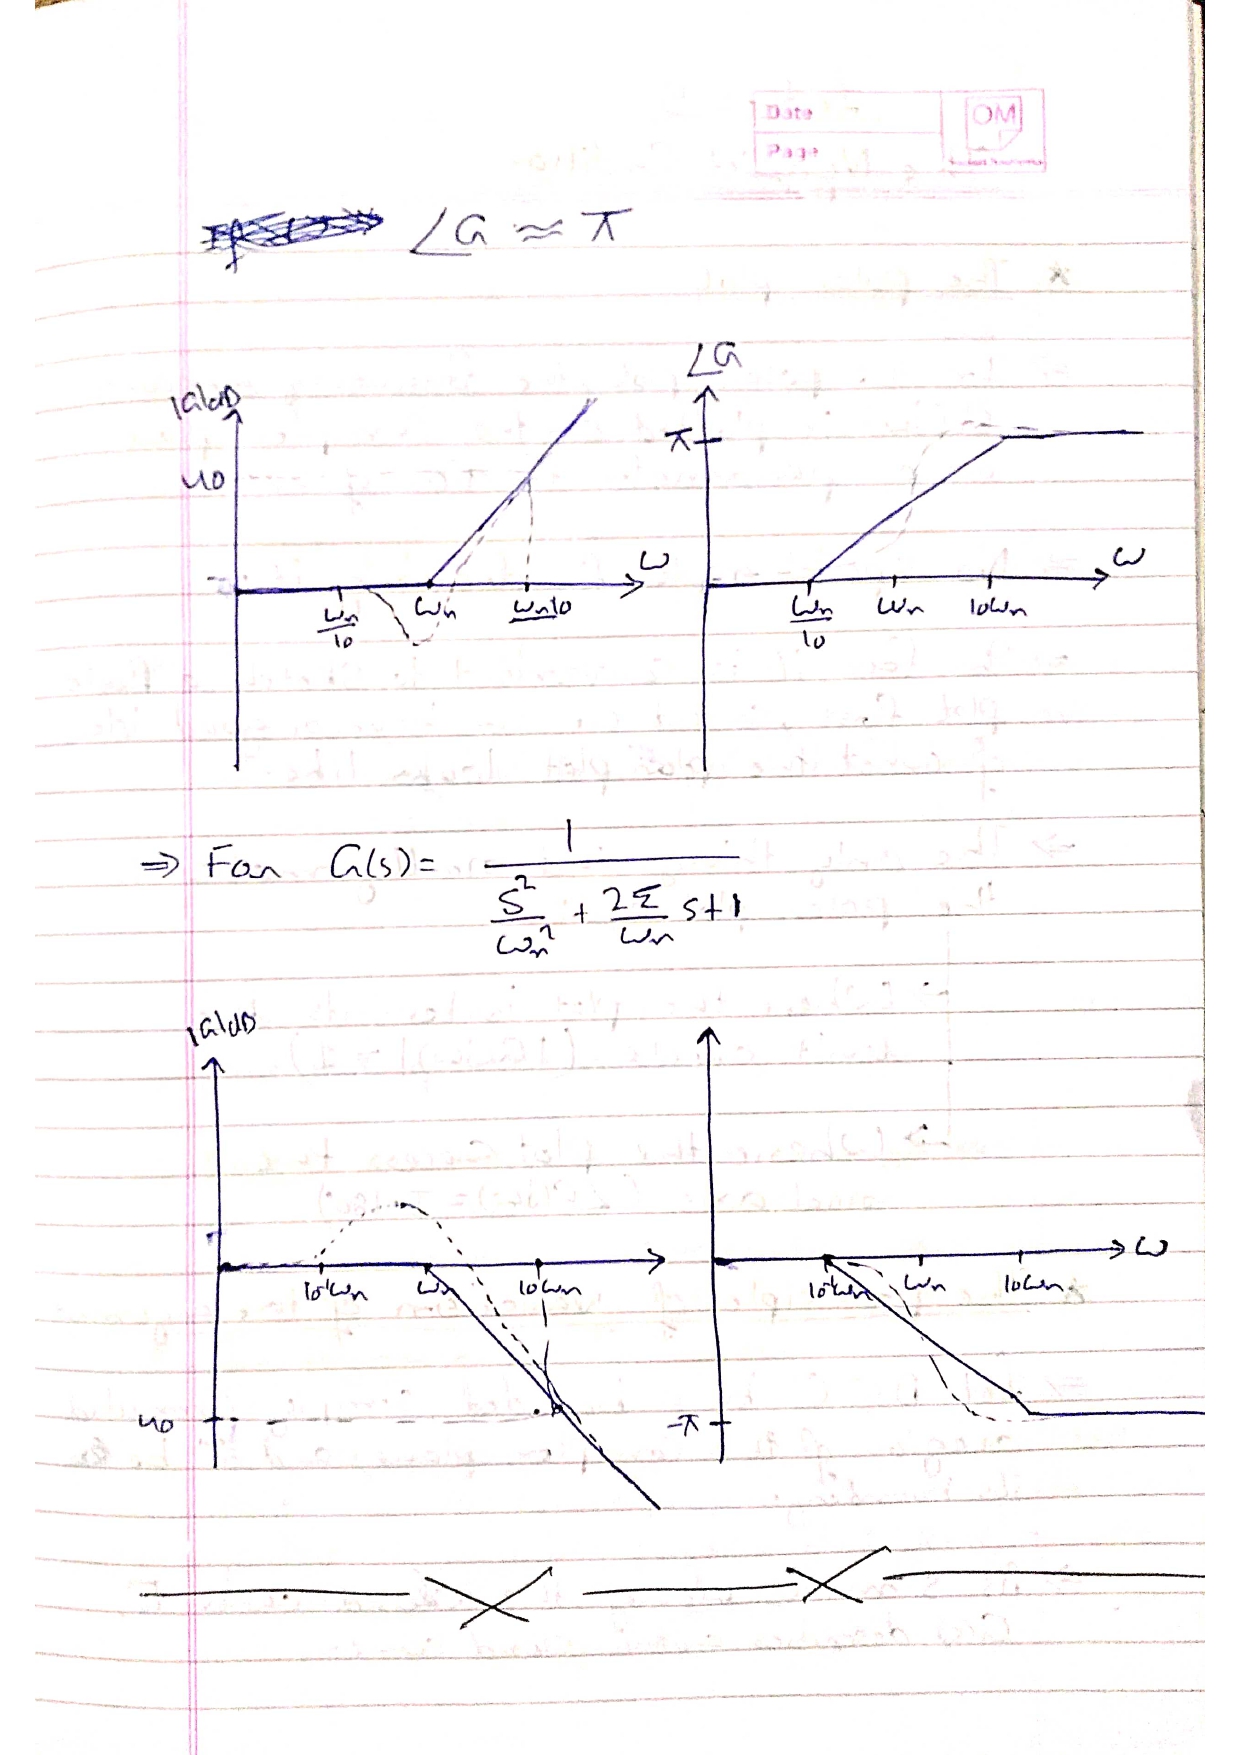 Date
OM
Page
∠G ≈ π
|G|dB
40
ω
ωn/10
ωn
ωn10
∠G
π
ω
ωn/10
ωn
10ωn
⇒ For G(s) = 1 / (s²/ωn² + 2Σ/ωn s + 1)
|G|dB
10⁻¹ωn
ωn
10ωn
40
ω
10⁻¹ωn
ωn
10ωn
-π